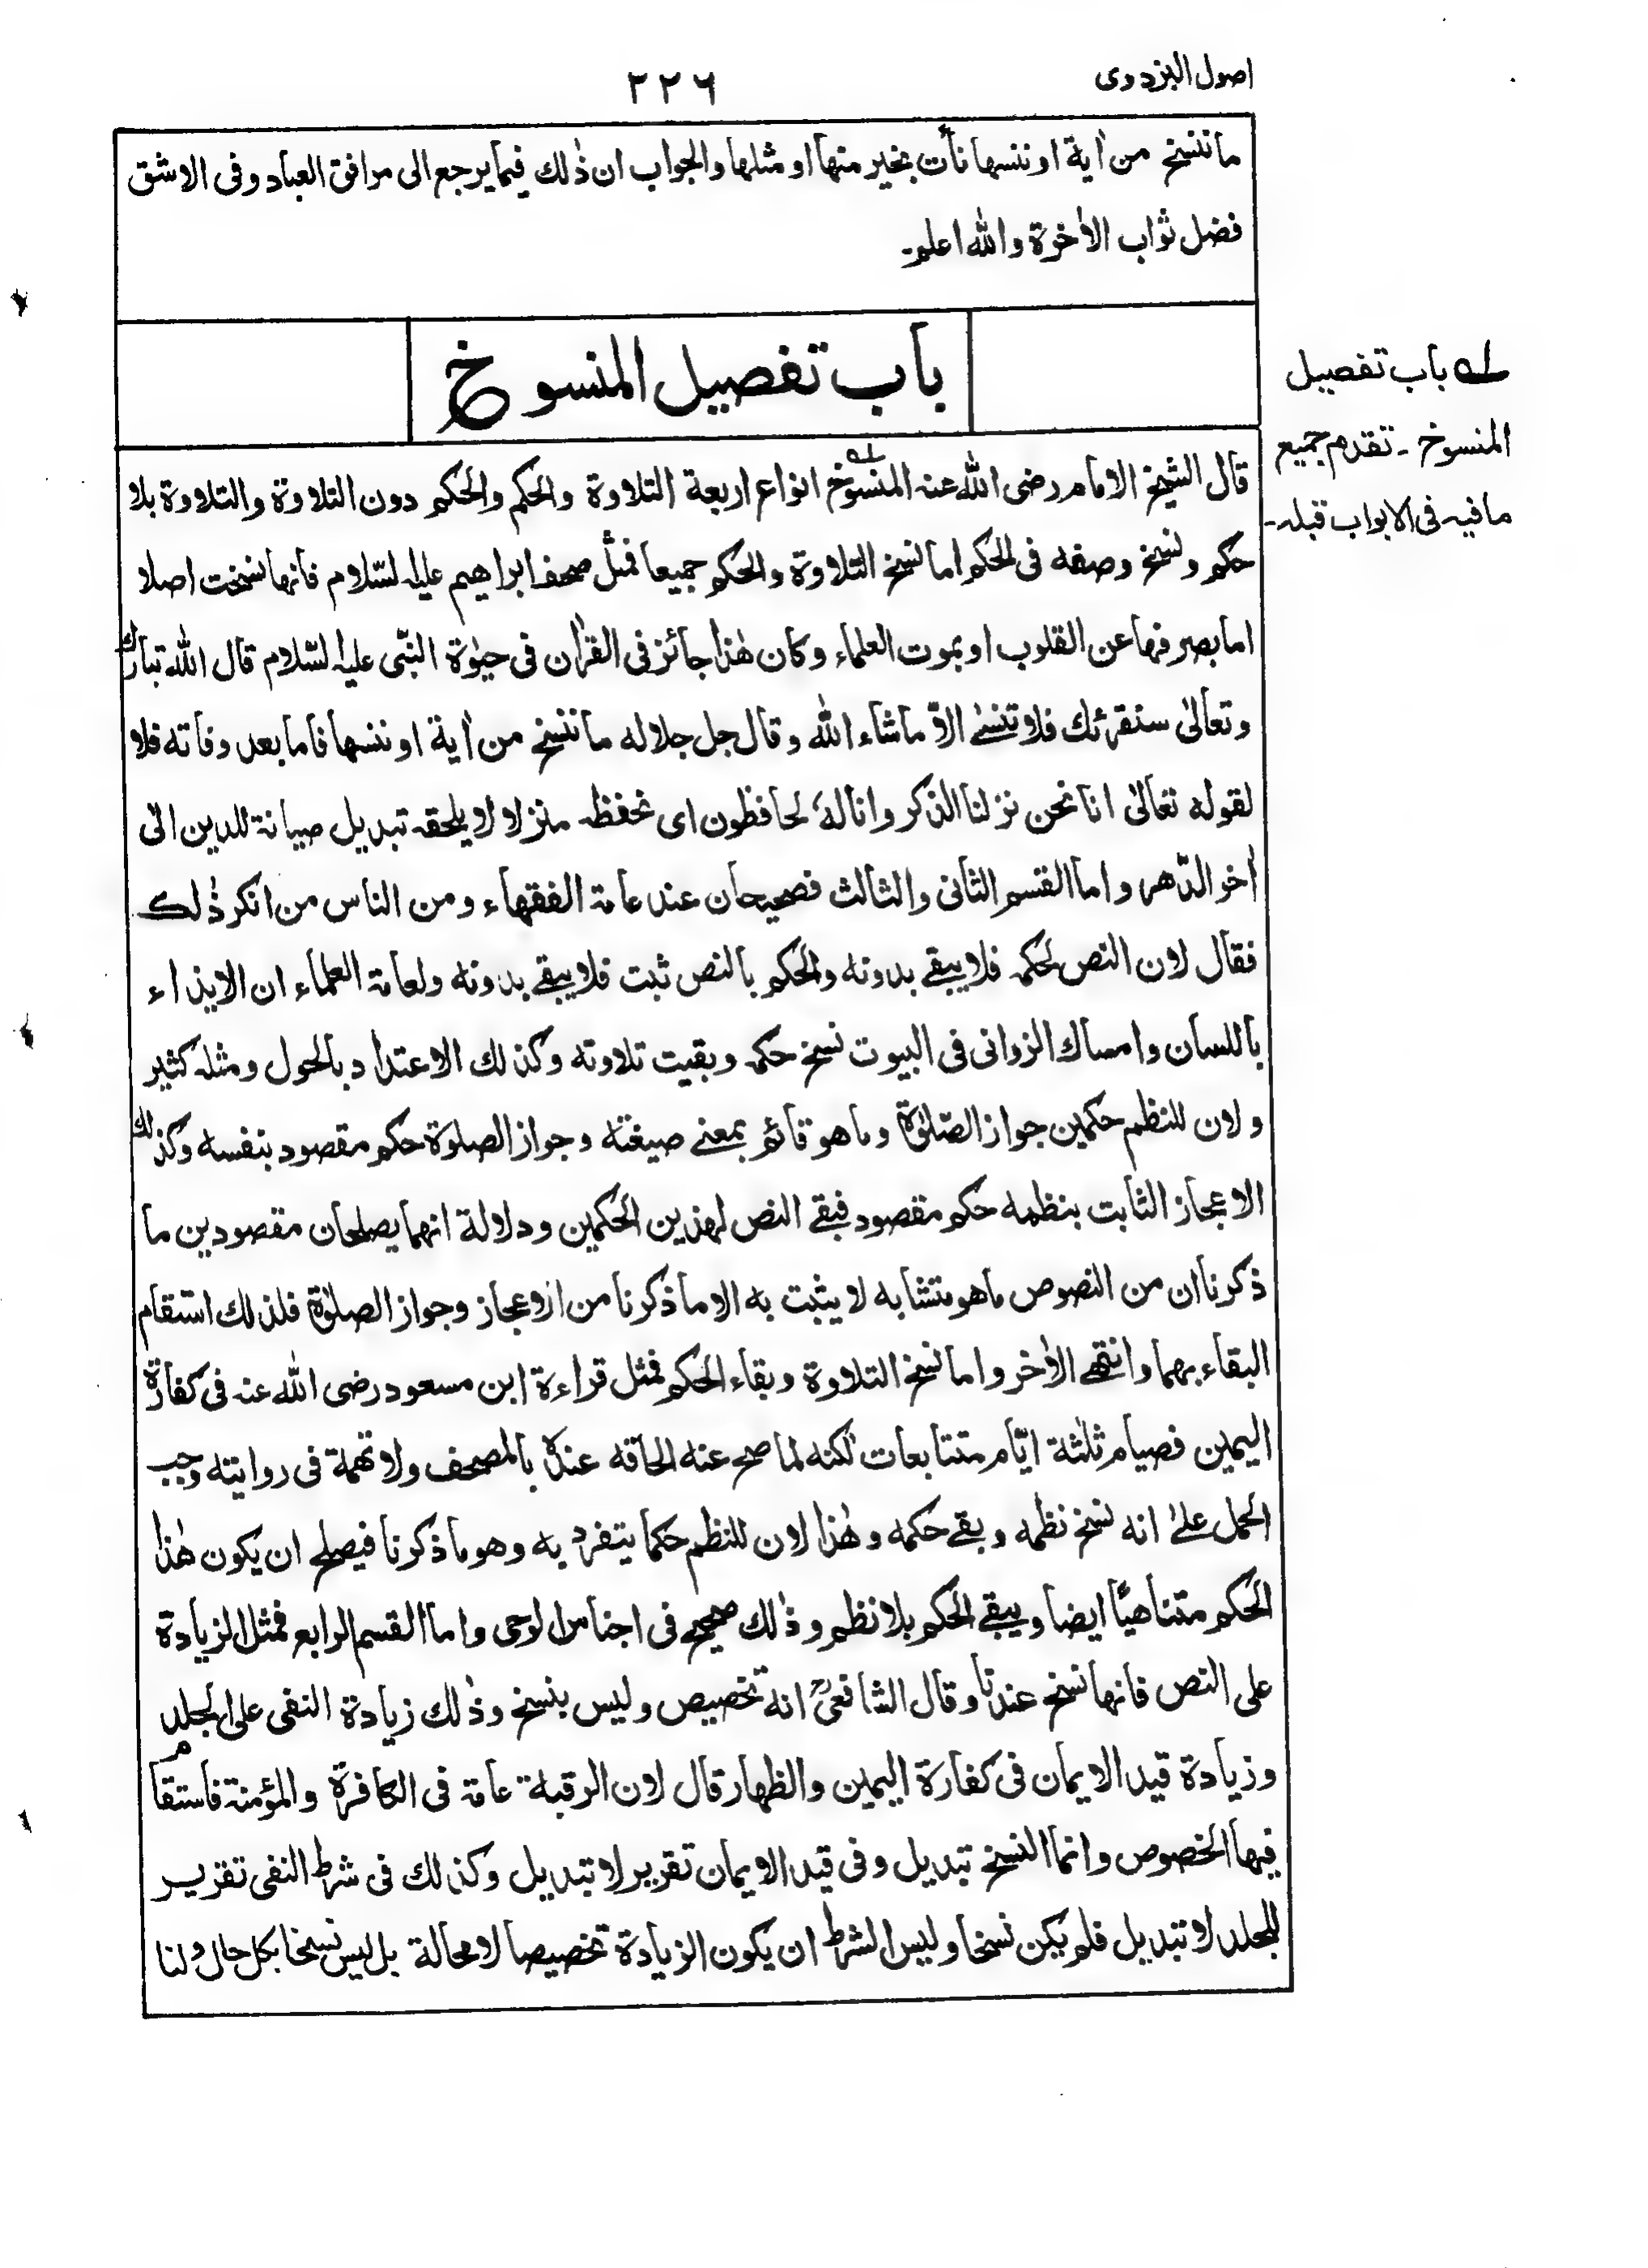 اصول البزدوى
٢٢٦
ما ننسخ من اٰية او ننسها نأت بخير منها او مثلها والجواب ان ذٰلك فيما يرجع الى مرافق العباد وفى الاشق
فضل ثواب الاٰخرة والله اعلم۔
باب تفصيل المنسوخ
قال الشيخ الامام رضى الله عنه المنسوخ انواع اربعة التلاوة والحكم والحكم دون التلاوة والتلاوة بلا
حكم ونسخ وصفه فى الحكم اما نسخ التلاوة والحكم جميعا فمثل صحف ابراهيم عليه السّلام فانها نسخت اصلا
اما بصرفها عن القلوب او بموت العلماء وكان هٰذا جائز فى القراٰن فى حيوٰة النبّى عليه السّلام قال الله تبارك
وتعالىٰ سنقرئك فلا تنسىٰ الاّ ما شاء الله وقال جل جلاله ما ننسخ من اٰية او ننسها فاما بعد وفاته فلا
لقوله تعالىٰ انا نحن نزلنا الذكر وانا لهٗ لحافظون اى نحفظه منزلا لا يلحقه تبديل صيانة للدين الىٰ
اٰخر الدّهر واما القسم الثانى والثالث فصحيحان عند عامة الفقهاء ومن الناس من انكر ذٰلك
فقال لان النص لحكمه فلا يبقے بدونه والحكم بالنص ثبت فلا يبقے بدونه ولعامة العلماء ان الايذاء
باللسان وامساك الزوانى فى البيوت نسخ حكمه وبقيت تلاوته وكذلك الاعتداد بالحول ومثله كثير
ولان للنظم حكمين جواز الصّلوٰة وما هو قائم بمعنے صيغته وجواز الصلوٰة حكم مقصود بنفسه وكذلك
الاعجاز الثابت بنظمه حكم مقصود فبقے النص لهذين الحكمين ودلالة انهما يصلحان مقصودين ما
ذكرنا ان من النصوص ما هو متشابه لا يثبت به الا ما ذكرنا من الاعجاز وجواز الصلوٰة فلذلك استقام
البقاء بهما وانتهے الاٰخر واما نسخ التلاوة وبقاء الحكم فمثل قراءة ابن مسعود رضى الله عنه فى كفارة
اليمين فصيام ثلٰثة ايّام متتابعات لٰكنه لما صح عنه الحاقه عنده بالمصحف ولا تهمة فى روايته وجب
الحمل علىٰ انه نسخ نظمه وبقے حكمه وهٰذا لان للنظم حكما يتفرد به وهو ما ذكرنا فيصلح ان يكون هٰذا
الحكم متناهيًا ايضا ويبقے الحكم بلا نظم وذٰلك صحيح فى اجناس الوحى واما القسم الرابع فمثل الزيادة
على النص فانها نسخ عندنا وقال الشافعىؒ انه تخصيص وليس بنسخ وذٰلك زيادة النفى على الجلد
وزيادة قيد الايمان فى كفارة اليمين والظهار قال لان الرقبة عامة فى الكافرة والمؤمنة فاستقام
فيها الخصوص وانما النسخ تبديل وفى قيد الايمان تقرير لا تبديل وكذلك فى شرط النفى تقرير
للجلد لا تبديل فلم يكن نسخا وليس الشرط ان يكون الزيادة تخصيصا لا محالة بل ليس نسخا بكل حال ولنا
لـه باب تفصيل
المنسوخ ۔ تقدم جميع
ما فيه فى الابواب قبله۔